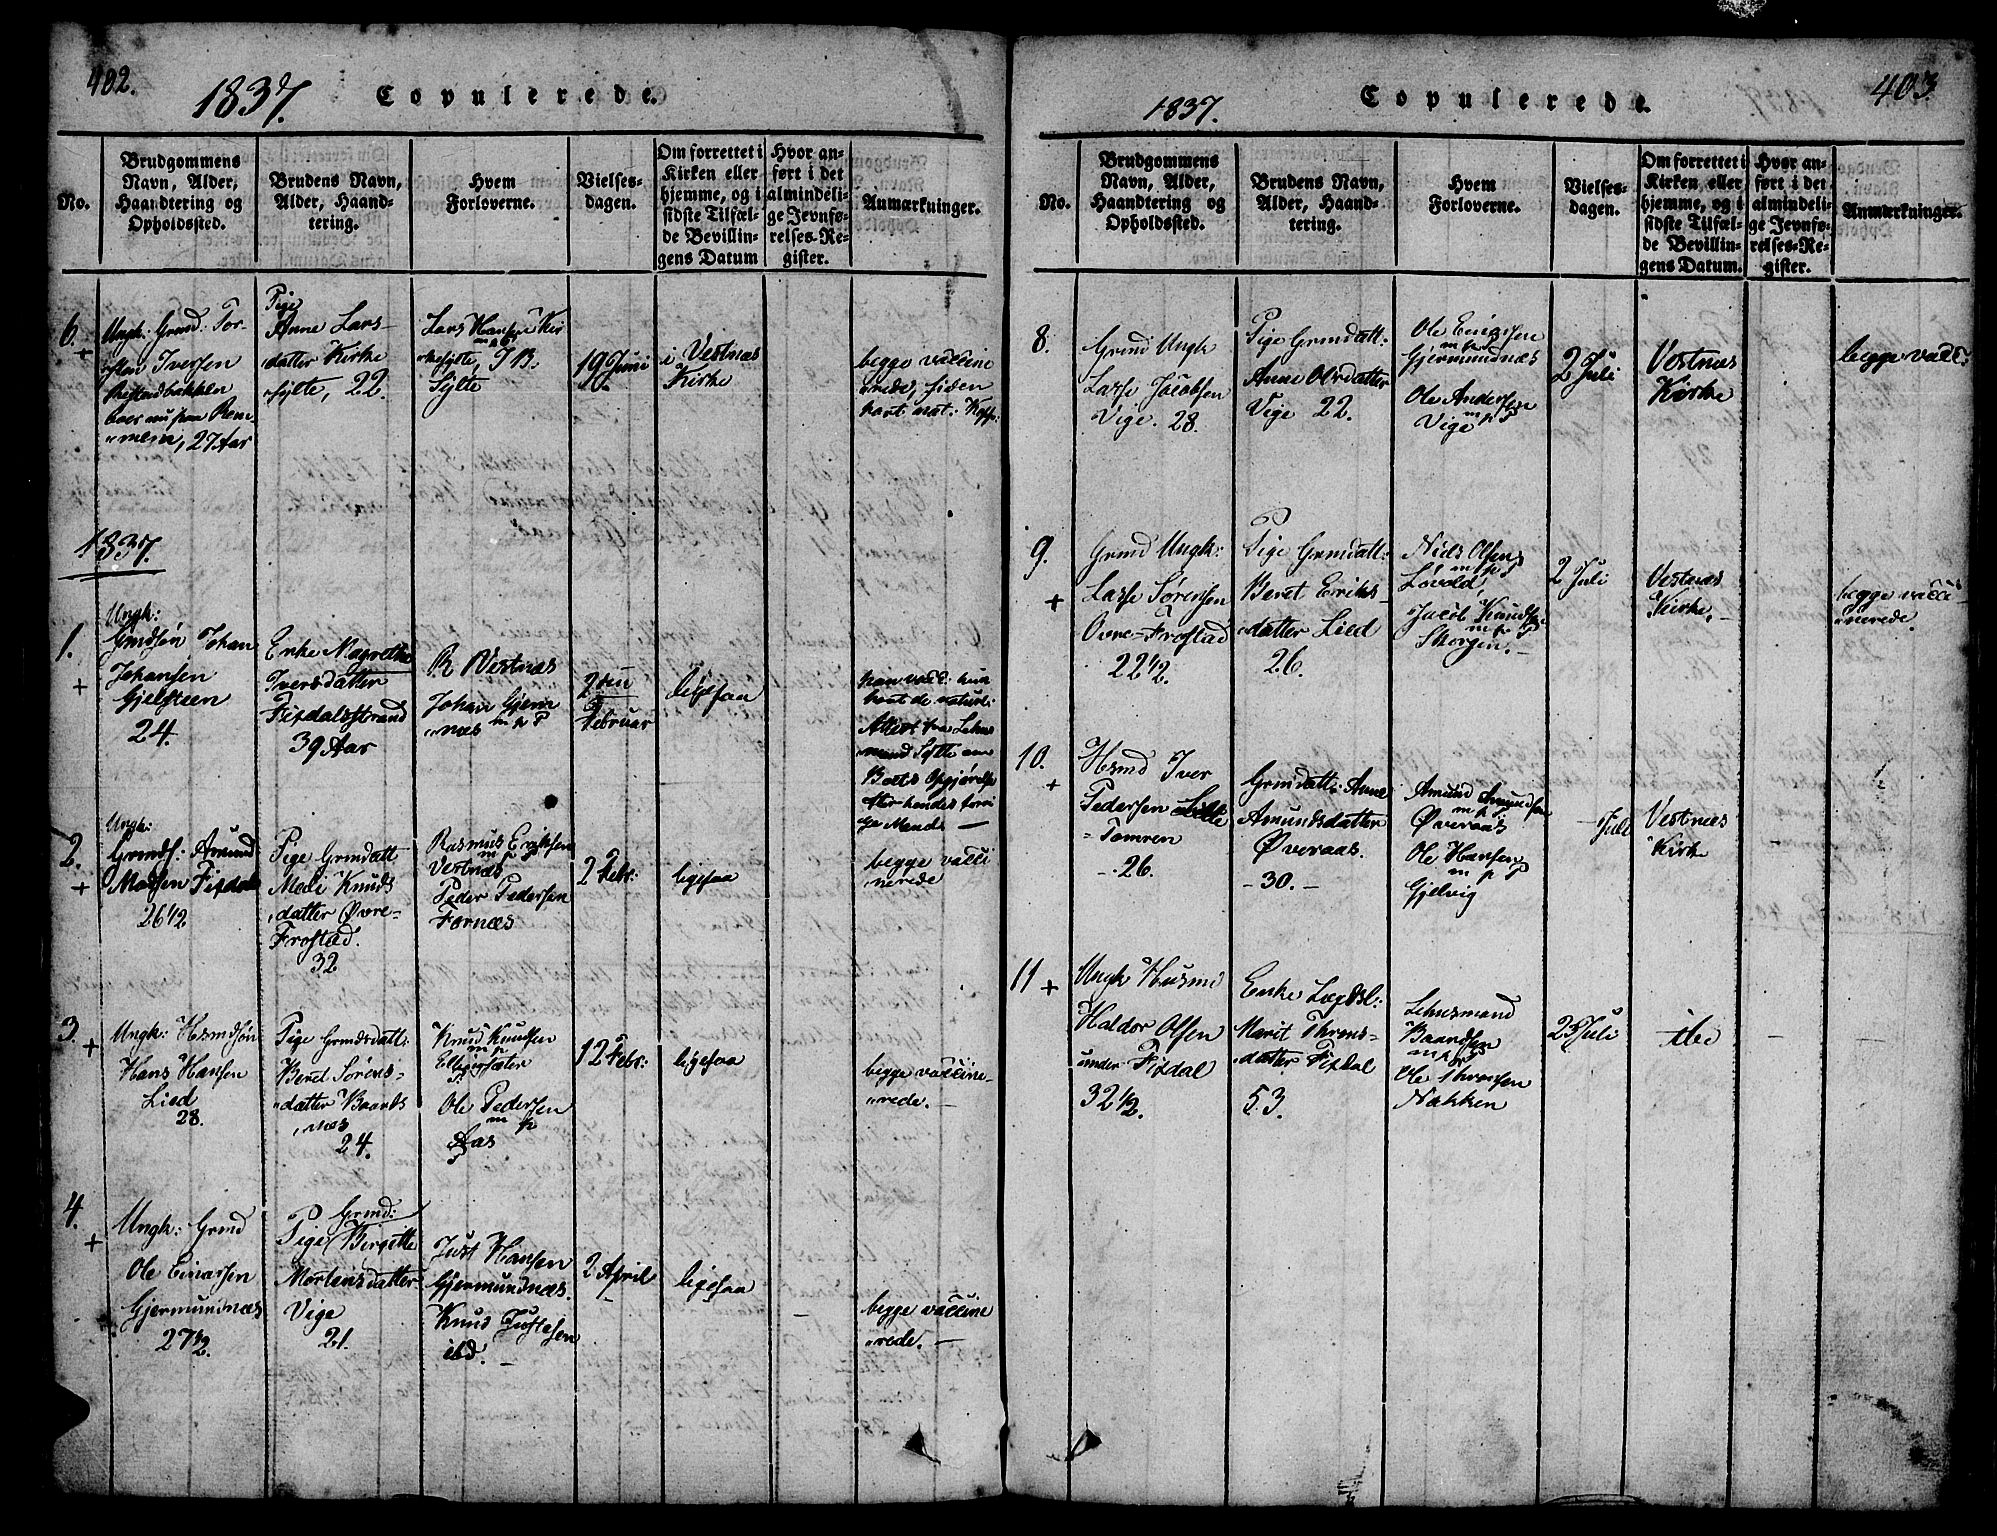 402.
1837.
Copulerede.
No.
Brudgommens
Navn, Alder,
Haandtering og
Opholdssted.
Brudens Navn,
Alder, Haand-
tering.
Hvem
Forloverne.
Vielses-
dagen.
Om forrettet i
Kirken eller
hjemme, og i
sidste Tilfæl-
de Bevillin-
gens Datum
Hvor an-
ført i det
almindeli-
ge Jevnfø-
relses-Re-
gister.
Anmærkninger.
6.
+
Ungk: Grmd: Tor-
sten Iversen
Restadbakken
boer nu paa Rem-
"mem, 27 Aar
Pige
Anne Lars-
datter Kirke
"sylte, 22.
Lars Hansen Kir
"kesylte, I B.
Sylte
19 Juni
i Vestnæs
Kirke
begge vaccine
"rede, siden
havt nat: Kopp:
1837.
1.
+
Ungk:
Grmdsøn Johan
Johansen
Gjelsteen
24.
Enke Magrethe
Iversdatter
Fixdalsstrand
39 Aar
R Vestnæs
Johan Gjerm
"næs m p P
2den
Februar
ligesaa
han vacc: hun
havt de naturl:
Attest fra Lehns
mand Sylte om
Boets Opgjørelse
efter hendes forri
ge Mand. —
2.
+
Ungk:
Grmds: Amund
Madsen Fixdal
26 1/2
Pige Grmdatt
Mali Knuds
"datter Øvre-
Frostad.
32
Rasmus Eriksen
m p P
Vestnæs
Peder Pedersen
Fornæs
2 Febr:
ligesaa
begge vacci
nerede
3.
+
Ungk: Hsmdsøn
Hans Hansen
Lied
28.
Pige Grmdsdatt:
Beret Sørens-
"datter Baards
"næs
24.
Knud Knudsen
m p
Ellingsæter
Ole Pedersen
m p
Aas
12 Febr:
ligesaa
begge vaccine-
"rede. —
4.
+
Ungk: Grmd
Ole Einarsen
Gjermundnæs
27 1/2.
Grmd:
Pige Birgitte
Mortensdatter
Vige
21.
Just Hansen
Gjermundnæs.
Knud Justesen
ibd. —
2 April
ligesaa
—
begge vaccine
"rede. —
1837.
Copulerede.
403.
No.
Brudgommens
Navn, Alder,
Haandtering og
Opholdssted.
Brudens Navn,
Alder, Haand-
tering.
Hvem
Forloverne.
Vielses-
dagen.
Om forrettet i
Kirken eller
hjemme, og i
sidste Tilfæl-
de Bevillin-
gens Datum.
Hvor an-
ført i det
almindeli-
ge Jevnfø-
relses-Re-
gister.
Anmærkninger.
8.
+
Grmd Ungk
Lasse Jacobsen
Vige. 28.
Pige Grmdatt:
Anne Olsdatter
Vige 22.
Ole Einarsen
m p P
Gjermundnæs
Ole Andersen
Vige m p P
2 Juli
Vestnæs
Kirke
begge vacc:
9.
+
Grmd Ungk:
Lasse Sørensen
Øvre-Frostad
22 1/2.
Pige Grmdatt:
Beret Eriks-
"datter Lied
26.
Niels Olsen
m p P
Løvold,
Jacob Knudsen
m p P
Skorgen. —
2 Juli
Vestnæs
Kirke.
begge vacci
"nerede.
10.
+
Hsmd Iver
Pedersen Lille
- Tomren
-. 26.
Grmdatt: Anne
Amundsdatter
Øveraas.
- 30. -
Amund Amundsen
m p P
Øveraas
Ole Hansen
m p P
Gjelvig
- Juli
Vestnæs
Kirke
-
11
+
Ungk Husmd
Haldor Olsen
under Fixdal
32 1/2.
Enke
Marit Throns-
"datter Fixdal
53.
Lehnsmand
Baardsen
m p P
Ole Thronsen
Nakken
25 Juli
ibd
-
-